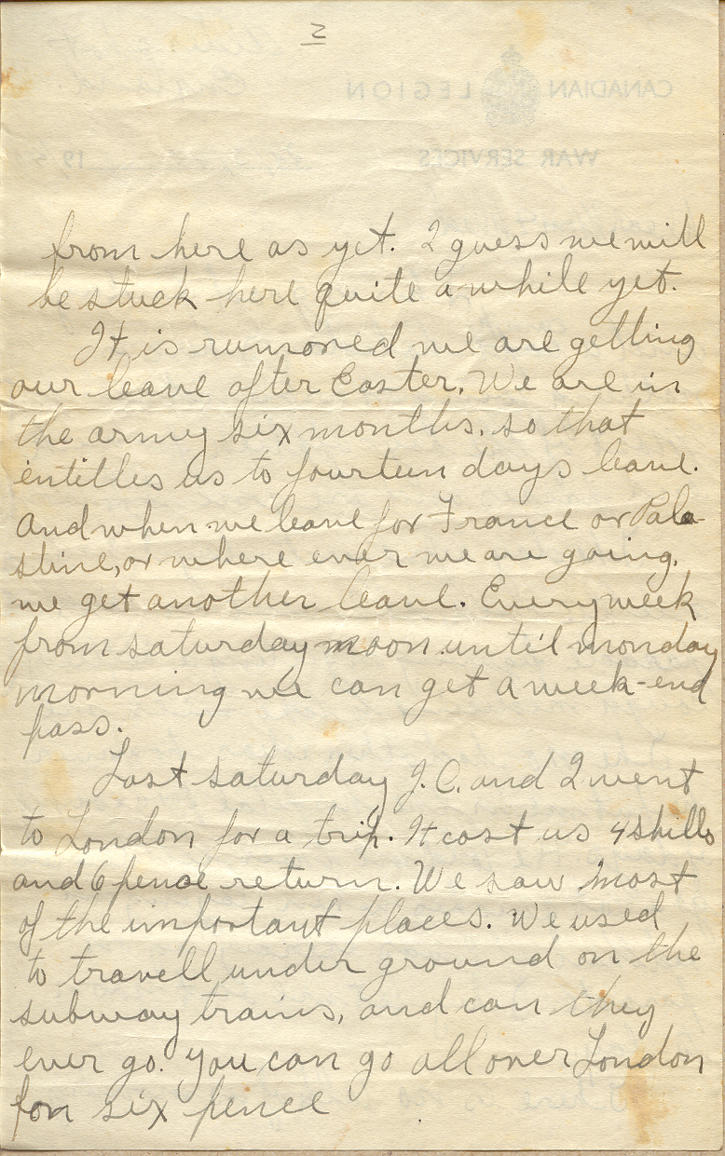 2
CANADIAN LEGION
WAR SERVICES
19
from here as yet. I guess we will
be stuck here quite a while yet.
It is rumored we are getting
our leave after Easter. We are in
the army six months. so that
entitles us to fourteen days leave.
And when we leave for France or Pale-
stine, or where ever we are going.
we get another leave. Every week
from saturday noon until monday
morning we can get a week-end
pass.
Last saturday J.C. and I went
to London for a trip. It cost us 4 shills
and 6 pence return. We saw most
of the important places. We used
to travell under ground on the
subway trains, and can they
ever go. You can go all over London
for six pence